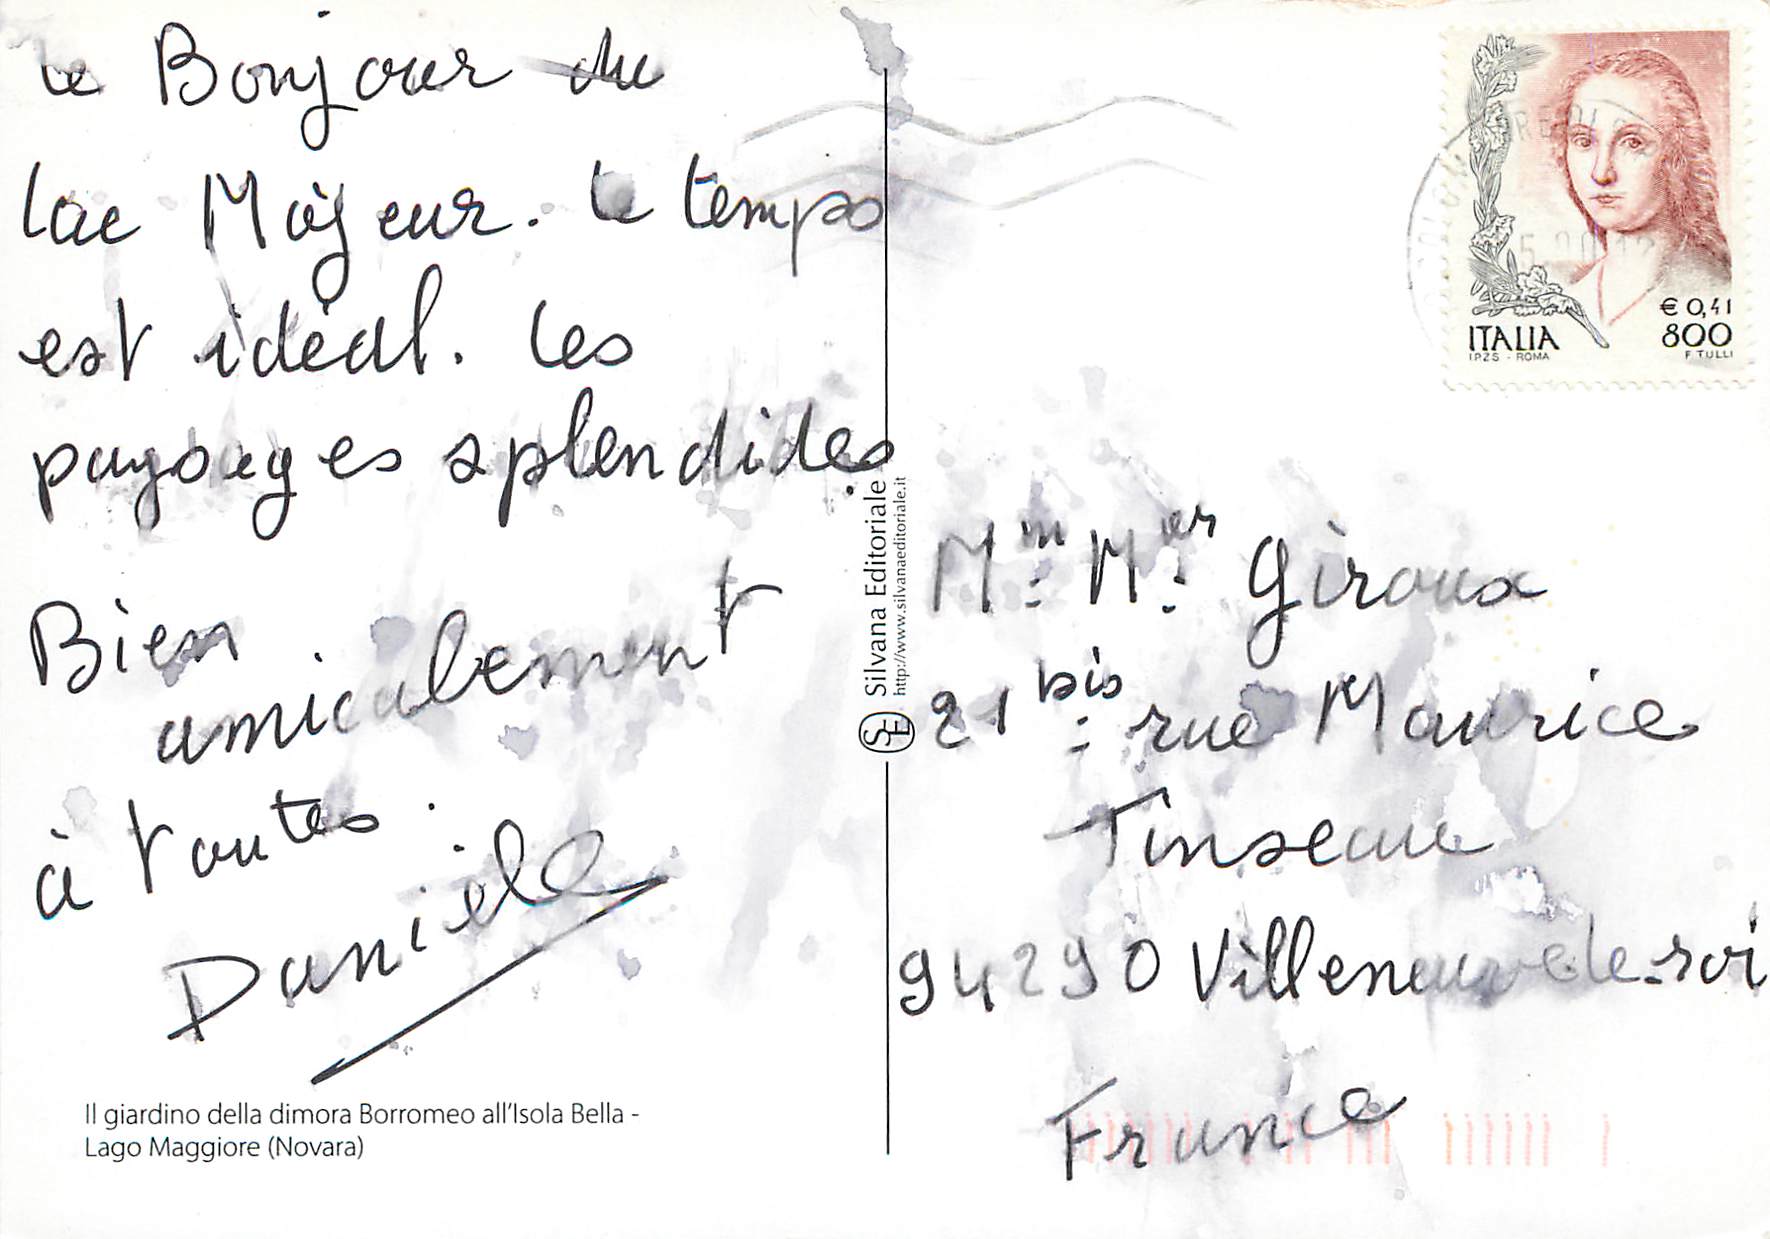 Le Bonjour du
lac Majeur. Le temps
est idéal. Les
paysages splendides.
Bien
amicalement
à toutes.
Danièle
Il giardino della dimora Borromeo all'Isola Bella -
Lago Maggiore (Novara)
Silvana Editoriale
http://www.silvanaeditoriale.it
SE
ITALIA
IPZS - ROMA
€ 0,41
800
F TULLI
Mm. Mer. Giroux
21 bis. rue Maurice
Tinseau
94290 Villeneuve-le-roi
France